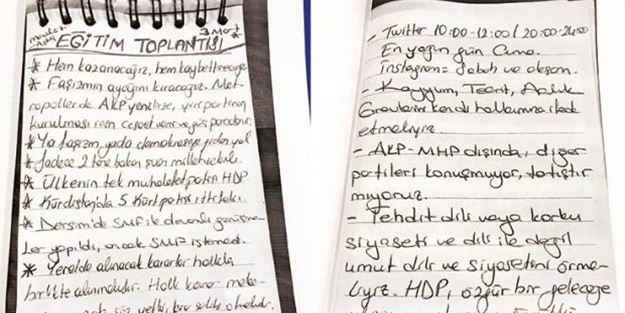 EĞİTİM TOPLANTISI
* Hem kazanacağız, hem kaybettireceğiz.
* Faşizmin ayağını kıracağız. Met-
ropollerde AKP yenilirse, yeni partinin
kurulması için cesaret verir ve güç parçalanır.
* Ya faşizm, yada demokrasiye giden yol
* Sadece 2 tane bakan şuan milletvekili.
* Ülkenin tek muhalefet partisi HDP.
* Kürdistan'da 5 Kürt partisi ittifakı.
* Dersim'de SMF ile devamlı görüşme-
ler yapıldı, ancak SMF istemedi.
* Yerelde alınacak kararlar halkla
birlikte alınmalıdır. Halk karar meka-
söz, yetki, karar sahibi olmalıdır.
- Twitter 10:00-12:00 / 20:00-24:00
En yoğun gün Cuma.
Instagram= Sabah ve akşam.
- Kayyum, Tecrit, Açlık
Grevlerini kendi hallerimizle ifade
etmeliyiz.
- AKP-MHP dışında, diğer
partileri konuşmuyor, tartıştır
mıyoruz.
- Tehdit dili veya korku
siyaseti ve dili ile değil
umut dili ve siyasetini örme-
liyiz. HDP, özgür bir geleceğe